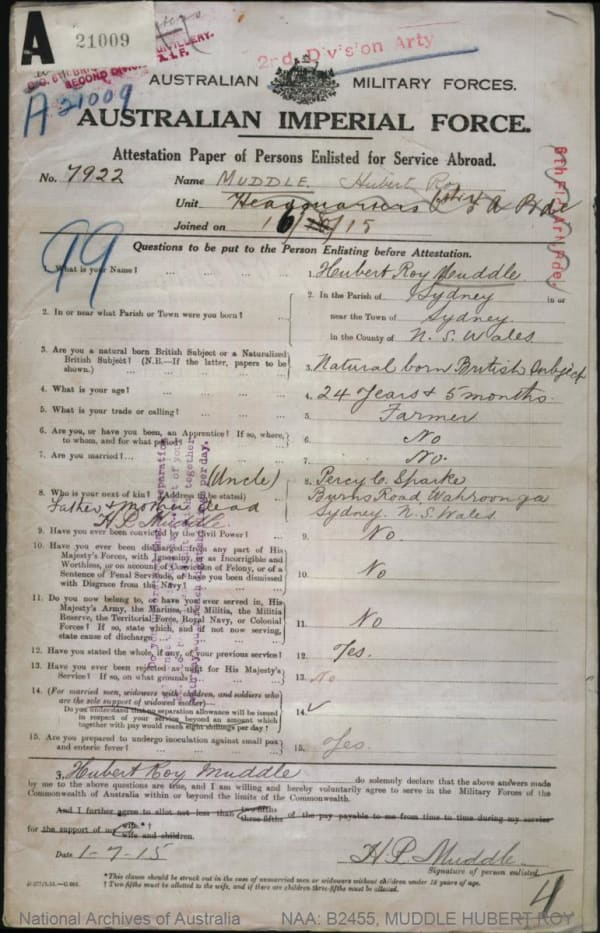 A
21009
SECOND DIV
A.I.F.
2nd Div's'on Arty
A 21009
AUSTRALIAN MILITARY FORCES.
AUSTRALIAN IMPERIAL FORCE.
Attestation Paper of Persons Enlisted for Service Abroad.
No. 7922 Name MUDDLE. Hubert Roy
Unit Headquarters
Joined on 15
6th F'ld Art. Bde.
99
Questions to be put to the Person Enlisting before Attestation.
1. What is your Name? ... ... ... ... 1. Hubert Roy Muddle
2. In or near what Parish or Town were you born? ... 2. In the Parish of Sydney in or
near the Town of Sydney
in the County of N. S. Wales
3. Are you a natural born British Subject or a Naturalized British Subject? (N.B.—If the latter, papers to be shown.) 3. Natural born British Subject
4. What is your age? ... ... ... ... 4. 24 Years + 5 months.
5. What is your trade or calling? ... ... ... 5. Farmer
6. Are you, or have you been, an Apprentice? If so, where, to whom, and for what period? 6. No
7. Are you married? ... ... ... ... 7. No.
8. Who is your next of kin? (Address to be stated) (Uncle) 8. Percy C. Sparke
Burns Road Wahroonga
Sydney. N. S. Wales
Father & Mother dead
9. Have you ever been convicted by the Civil Power? ... 9. No
10. Have you ever been discharged from any part of His Majesty's Forces, with Ignominy, or as Incorrigible and Worthless, or on account of Conviction of Felony, or of a Sentence of Penal Servitude, or have you been dismissed with Disgrace from the Navy? 10. No
11. Do you now belong to, or have you ever served in, His Majesty's Army, the Marines, the Militia, the Militia Reserve, the Territorial Force, Royal Navy, or Colonial Forces? If so, state which, and if not now serving, state cause of discharge 11. No
12. Have you stated the whole, if any, of your previous service? 12. Yes.
13. Have you ever been rejected as unfit for His Majesty's Service? If so, on what grounds? 13. No
14. (For married men, widowers with children, and soldiers who are the sole support of widowed mother)—
Do you understand that no separation allowance will be issued in respect of your service beyond an amount which together with pay would reach eight shillings per day? 14. ✓
15. Are you prepared to undergo inoculation against small pox and enteric fever? 15. Yes.
3, Hubert Roy Muddle do solemnly declare that the above answers made
by me to the above questions are true, and I am willing and hereby voluntarily agree to serve in the Military Forces of the
Commonwealth of Australia within or beyond the limits of the Commonwealth.
And I further agree to allot not less than two-fifths three-fifths of the pay payable to me from time to time during my service
for the support of my wife.*† wife and children.
Date 1-7-15 H.R. Muddle.
Signature of person enlisted.
*This clause should be struck out in the case of unmarried men or widowers without children under 18 years of age.
† Two-fifths must be allotted to the wife, and if there are children three-fifths must be allotted.
4
National Archives of Australia NAA: B2455, MUDDLE HUBERT ROY